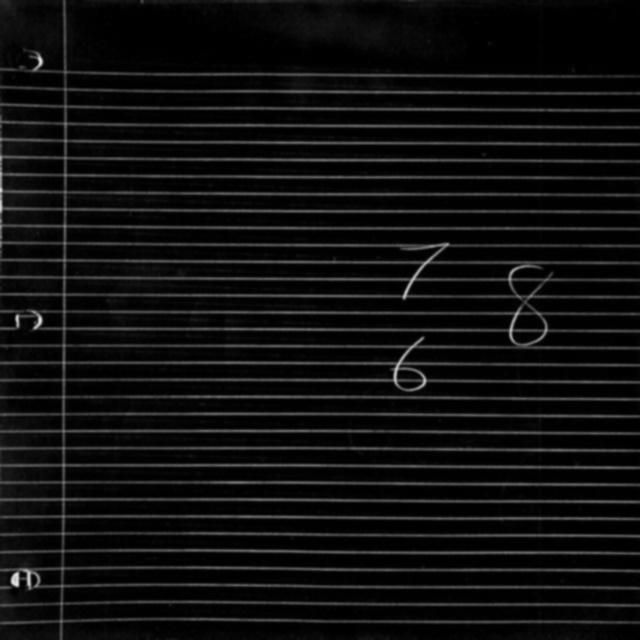 7
8
6